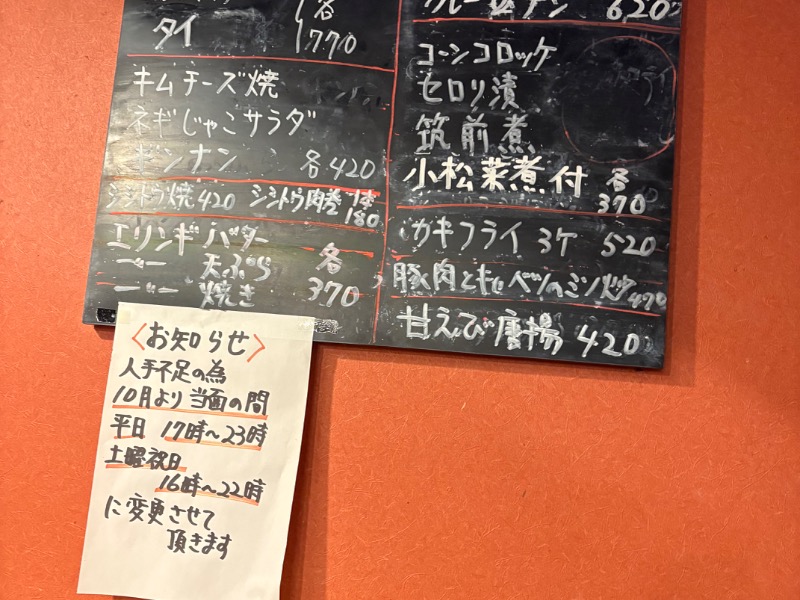 各
タイ 770
キムチーズ焼
ネギじゃこサラダ
ギンナン 各420
シシトウ焼420 シシトウ肉巻 1本180
エリンギバター
〃 天ぷら 各
〃 焼き 370
620
コーンコロッケ
セロリ漬
筑前煮
小松菜煮付 各370
カキフライ 3ケ 520
豚肉とキャベツのミソ炒 470
甘えび唐揚 420
〈お知らせ〉
人手不足の為
10月より当面の間
平日 17時〜23時
土曜祝日
16時〜22時
に変更させて
頂きます